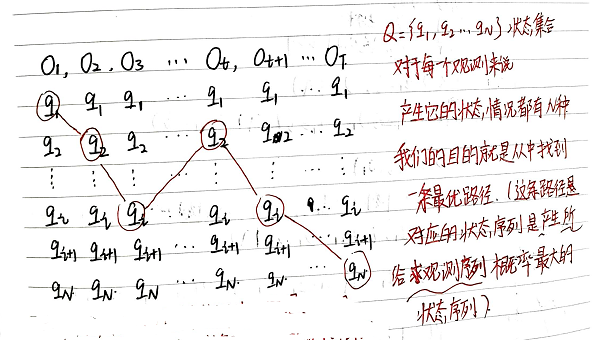 O₁, O₂, O₃ ⋯ Oₜ, Oₜ₊₁ ⋯ O_T
q₁ q₁ q₁ ⋯ q₁ q₁ ⋯ q₁
q₂ q₂ q₂ ⋯ q₂ q₂ ⋯ q₂
⋮ ⋮ ⋮ ⋯ ⋮ ⋮ ⋮
qᵢ qᵢ qᵢ ⋯ qᵢ qᵢ ⋯ qᵢ
qᵢ₊₁ qᵢ₊₁ qᵢ₊₁ ⋯ qᵢ₊₁ qᵢ₊₁ ⋯ qᵢ₊₁
q_N q_N q_N ⋯ q_N q_N ⋯ q_N
Q={q₁,q₂…q_N}状态集合
对于每个观测来说
产生它的状态情况都有N种
我们的目的就是从中找到
一条最优路径.(这条路径
对应的状态序列是产生所
给观测序列概率最大的
状态序列).